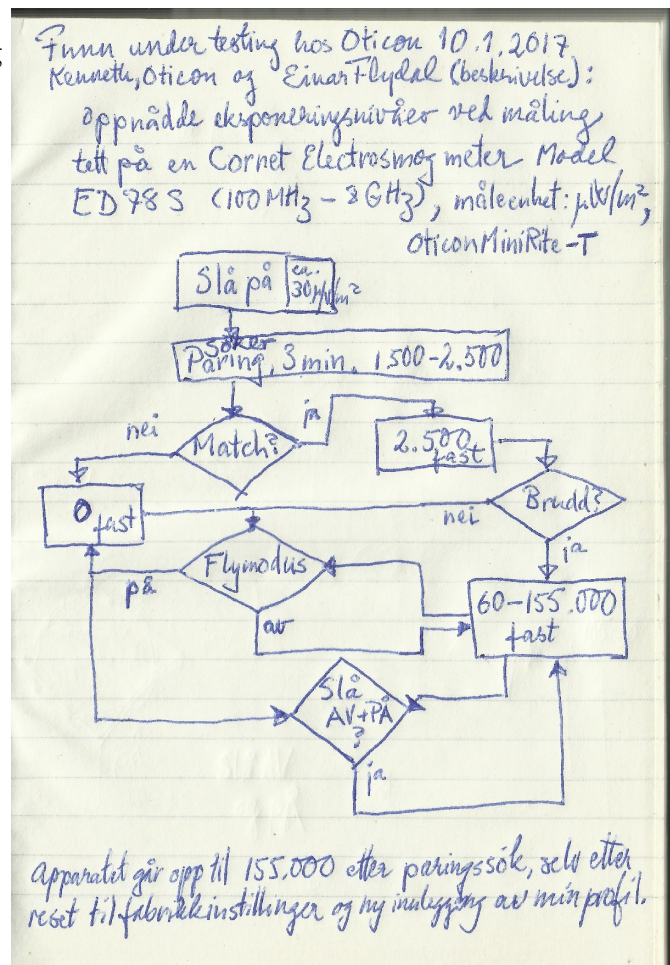 Funn under testing hos Oticon 10.1.2017
Kenneth, Oticon og Einar Flydal (beskrivelse):
oppnådde eksponeringsnivåer ved måling
tett på en Cornet Electrosmog meter Model
ED78S (100 MHz – 8 GHz), måleenhet: µW/m²,
Oticon MiniRite-T
Slå på
ca.
30 µW/m²
søker
Paring, 3 min. 1500-2.500
nei
Match?
ja
2.500
fast
0 fast
nei
Brudd?
ja
Flymodus
på
av
60-155.000
fast
Slå
AV+PÅ
?
ja
Apparatet går opp til 155.000 etter paringssøk, selv etter
reset til fabrikkinstillinger og ny innlegging av min profil.